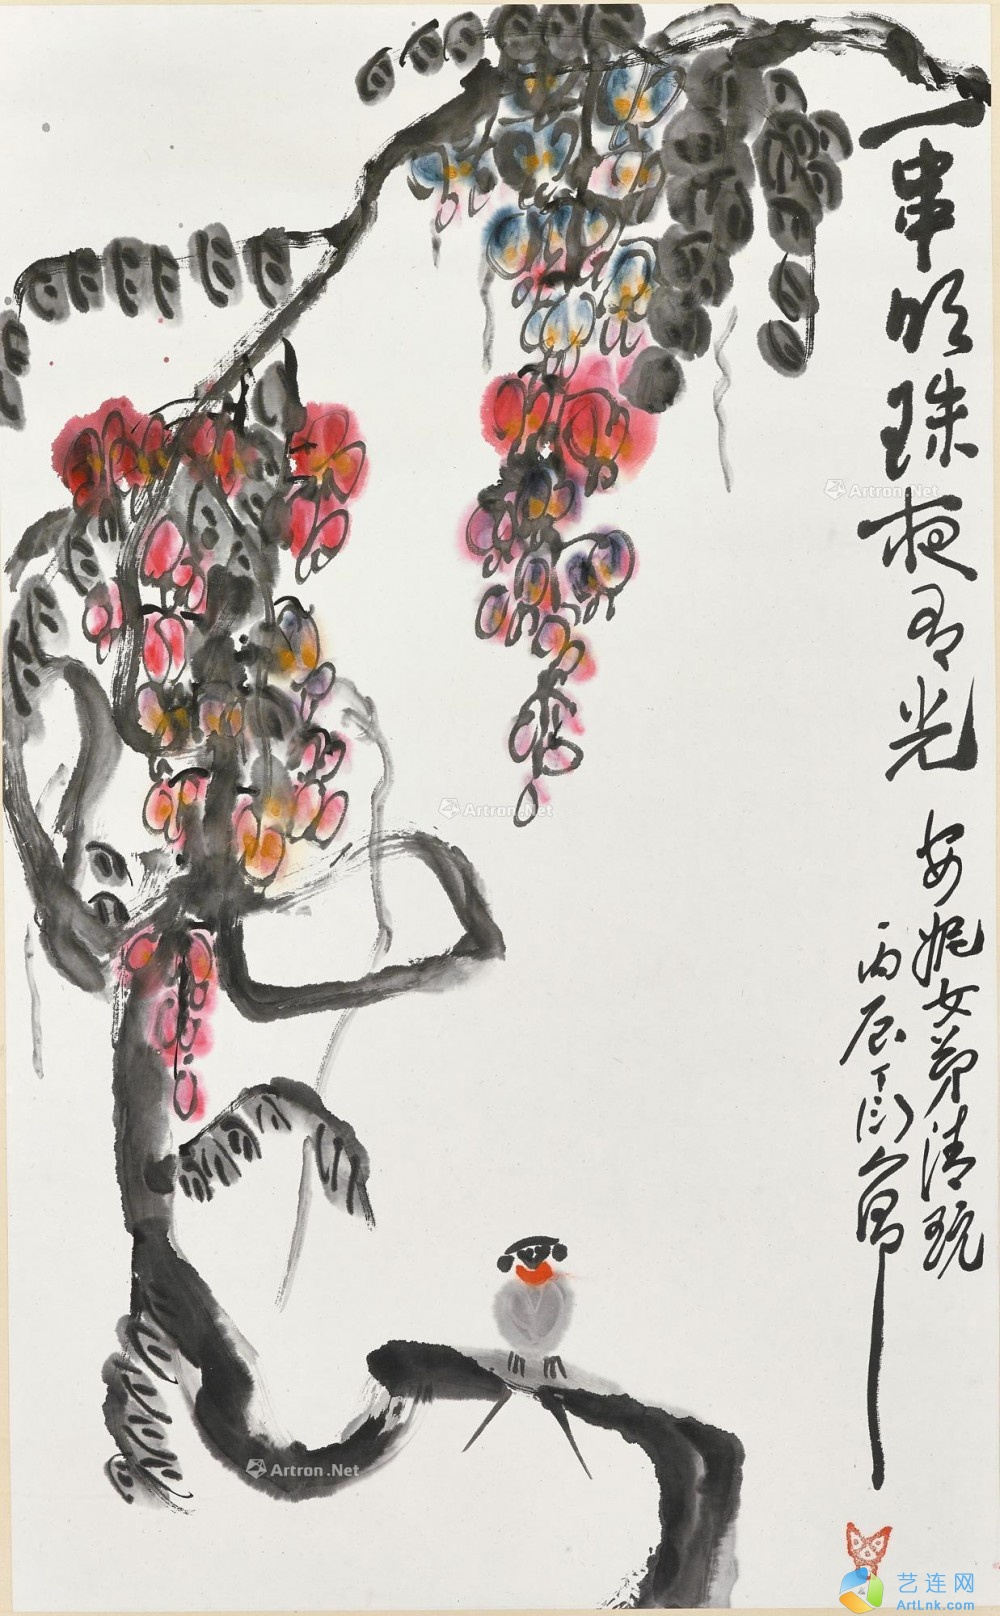 一串明珠夜有光
安妮女弟清玩
丙辰丁衍庸
Artron.Net
Artron.Net
Artron.Net
艺连网
ArtLnk.com